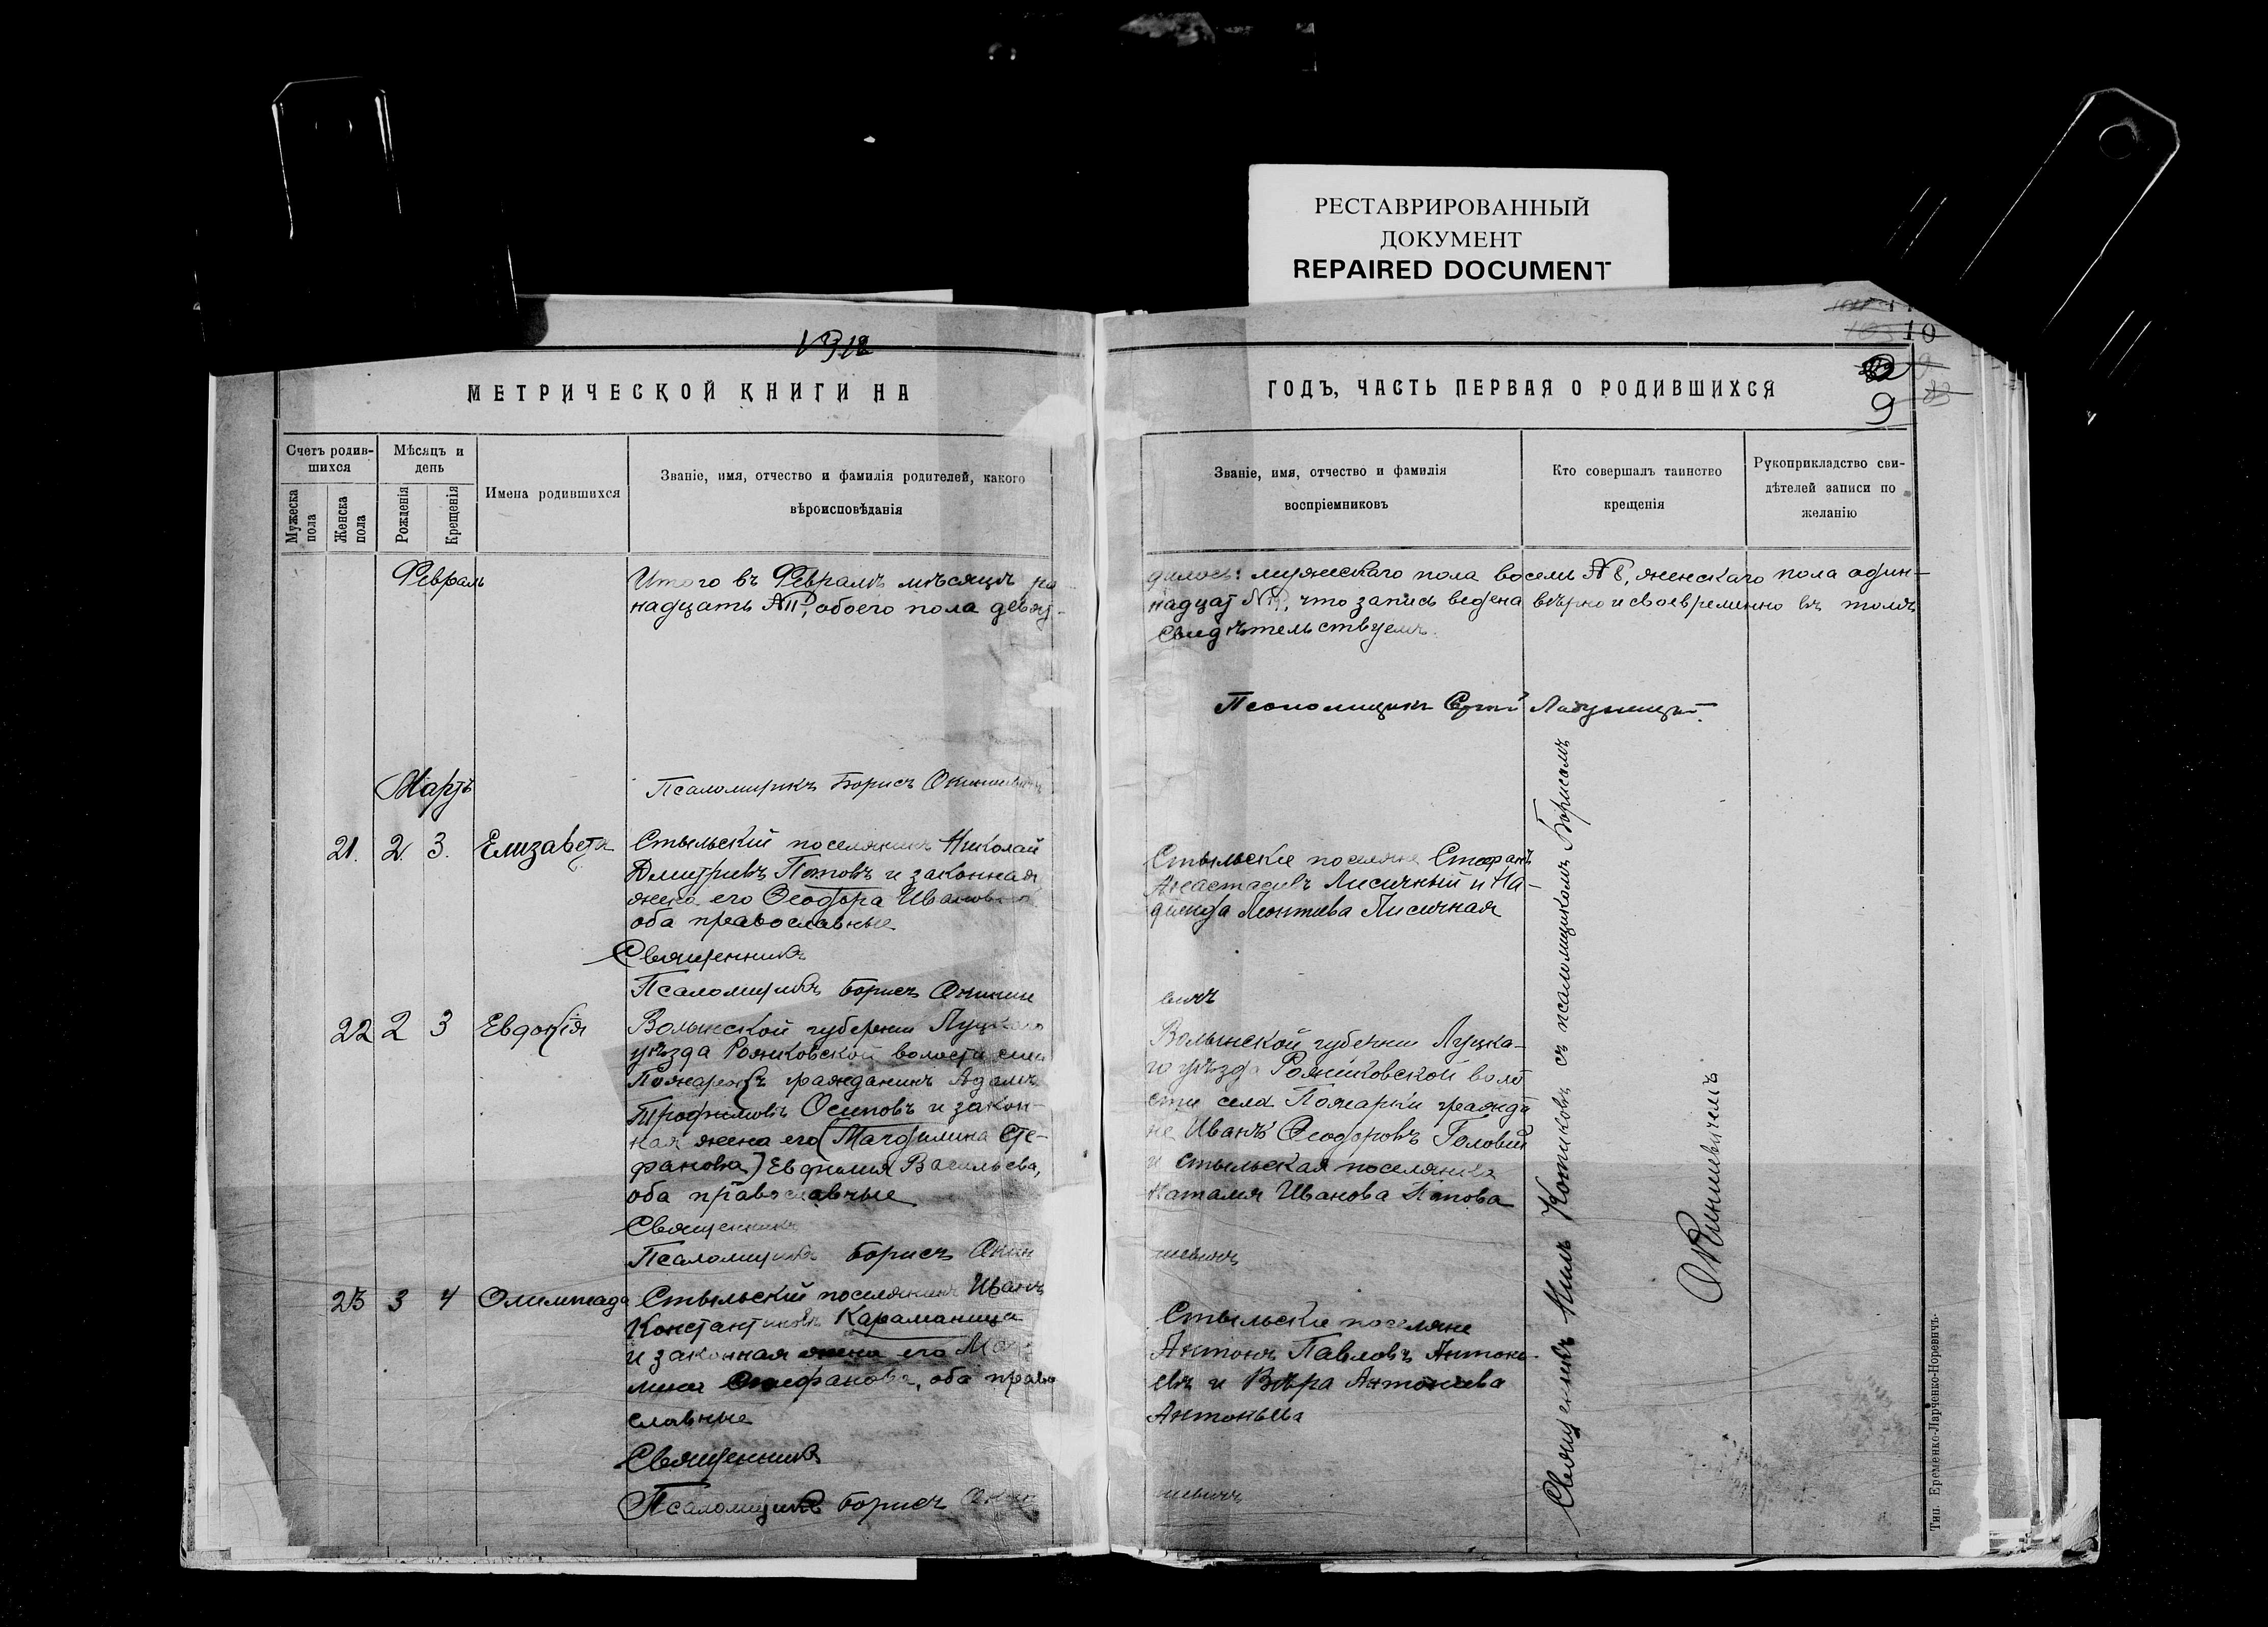 РЕСТАВРИРОВАННЫЙ
ДОКУМЕНТ
REPAIRED DOCUMENT
10
9
МЕТРИЧЕСКОЙ КНИГИ НА
ГОДЪ, ЧАСТЬ ПЕРВАЯ О РОДИВШИХСЯ
Счетъ родив-
шихся
Мужеска
пола
Женска
пола
Мѣсяцъ и
день
Рожденія
Крещенія
Имена родившихся
Званіе, имя, отчество и фамилія родителей, какого
вѣроисповѣданія
Званіе, имя, отчество и фамилія
воспріемниковъ
Кто совершалъ таинство
крещенія
Рукоприкладство сви-
дѣтелей записи по
желанію
Февраль
Итого въ Февралѣ мѣсяцѣ ро
надцать №11, обоего пола девят-
дилось: мужескаго пола восемь №8, женскаго пола один-
надцат что запись ведена вѣрно и своевременно въ томъ
свидѣтельствуемъ.
Псаломщикъ Сергій
Мартъ
Псаломщикъ Борисъ
21. 2. 3. Елизавета
Стыльскій поселянинъ Николай
Дмитріевъ Поповъ и законная
жена его Ѳеодора Иванова
оба православные
Священникъ
Псаломщикъ Борисъ Окиши
Стыльскіе поселяне Стефанъ
Анастасіевъ Лисичный и На-
дежда Леонтіева Лисичная
вичъ
22 2 3 Евдокія
Волынской губерніи Луцкаго
уѣзда Рожковской волости села
гражданинъ Адамъ
Трофимовъ Осиповъ и закон-
ная жена его (Магдалина Сте-
фанова) Евфимія Васильева,
оба православные
Священникъ
Псаломщикъ Борисъ
Волынской губерніи Луцка-
го уѣзда волос
сти села Пожарки гражда
не Иванъ Ѳеодоровъ Головій
и стыльская поселянка
Наталія Иванова Попова
шевичъ
23 3 4 Олимпіада
Стыльскій поселянинъ Иванъ
Константиновъ Караманица
и законная жена его
Стефанова, оба право
славные
Священникъ
Псаломщикъ Борисъ
Стыльскіе поселяне
Антонъ Павловъ Антонь-
евъ и Вѣра Антоніева
Антоньева
шевичъ
Священникъ Нилъ Котиковъ съ псаломщикомъ Борисомъ
Окишевичемъ
Тип. Еременко-Ларченко-Норевичъ.